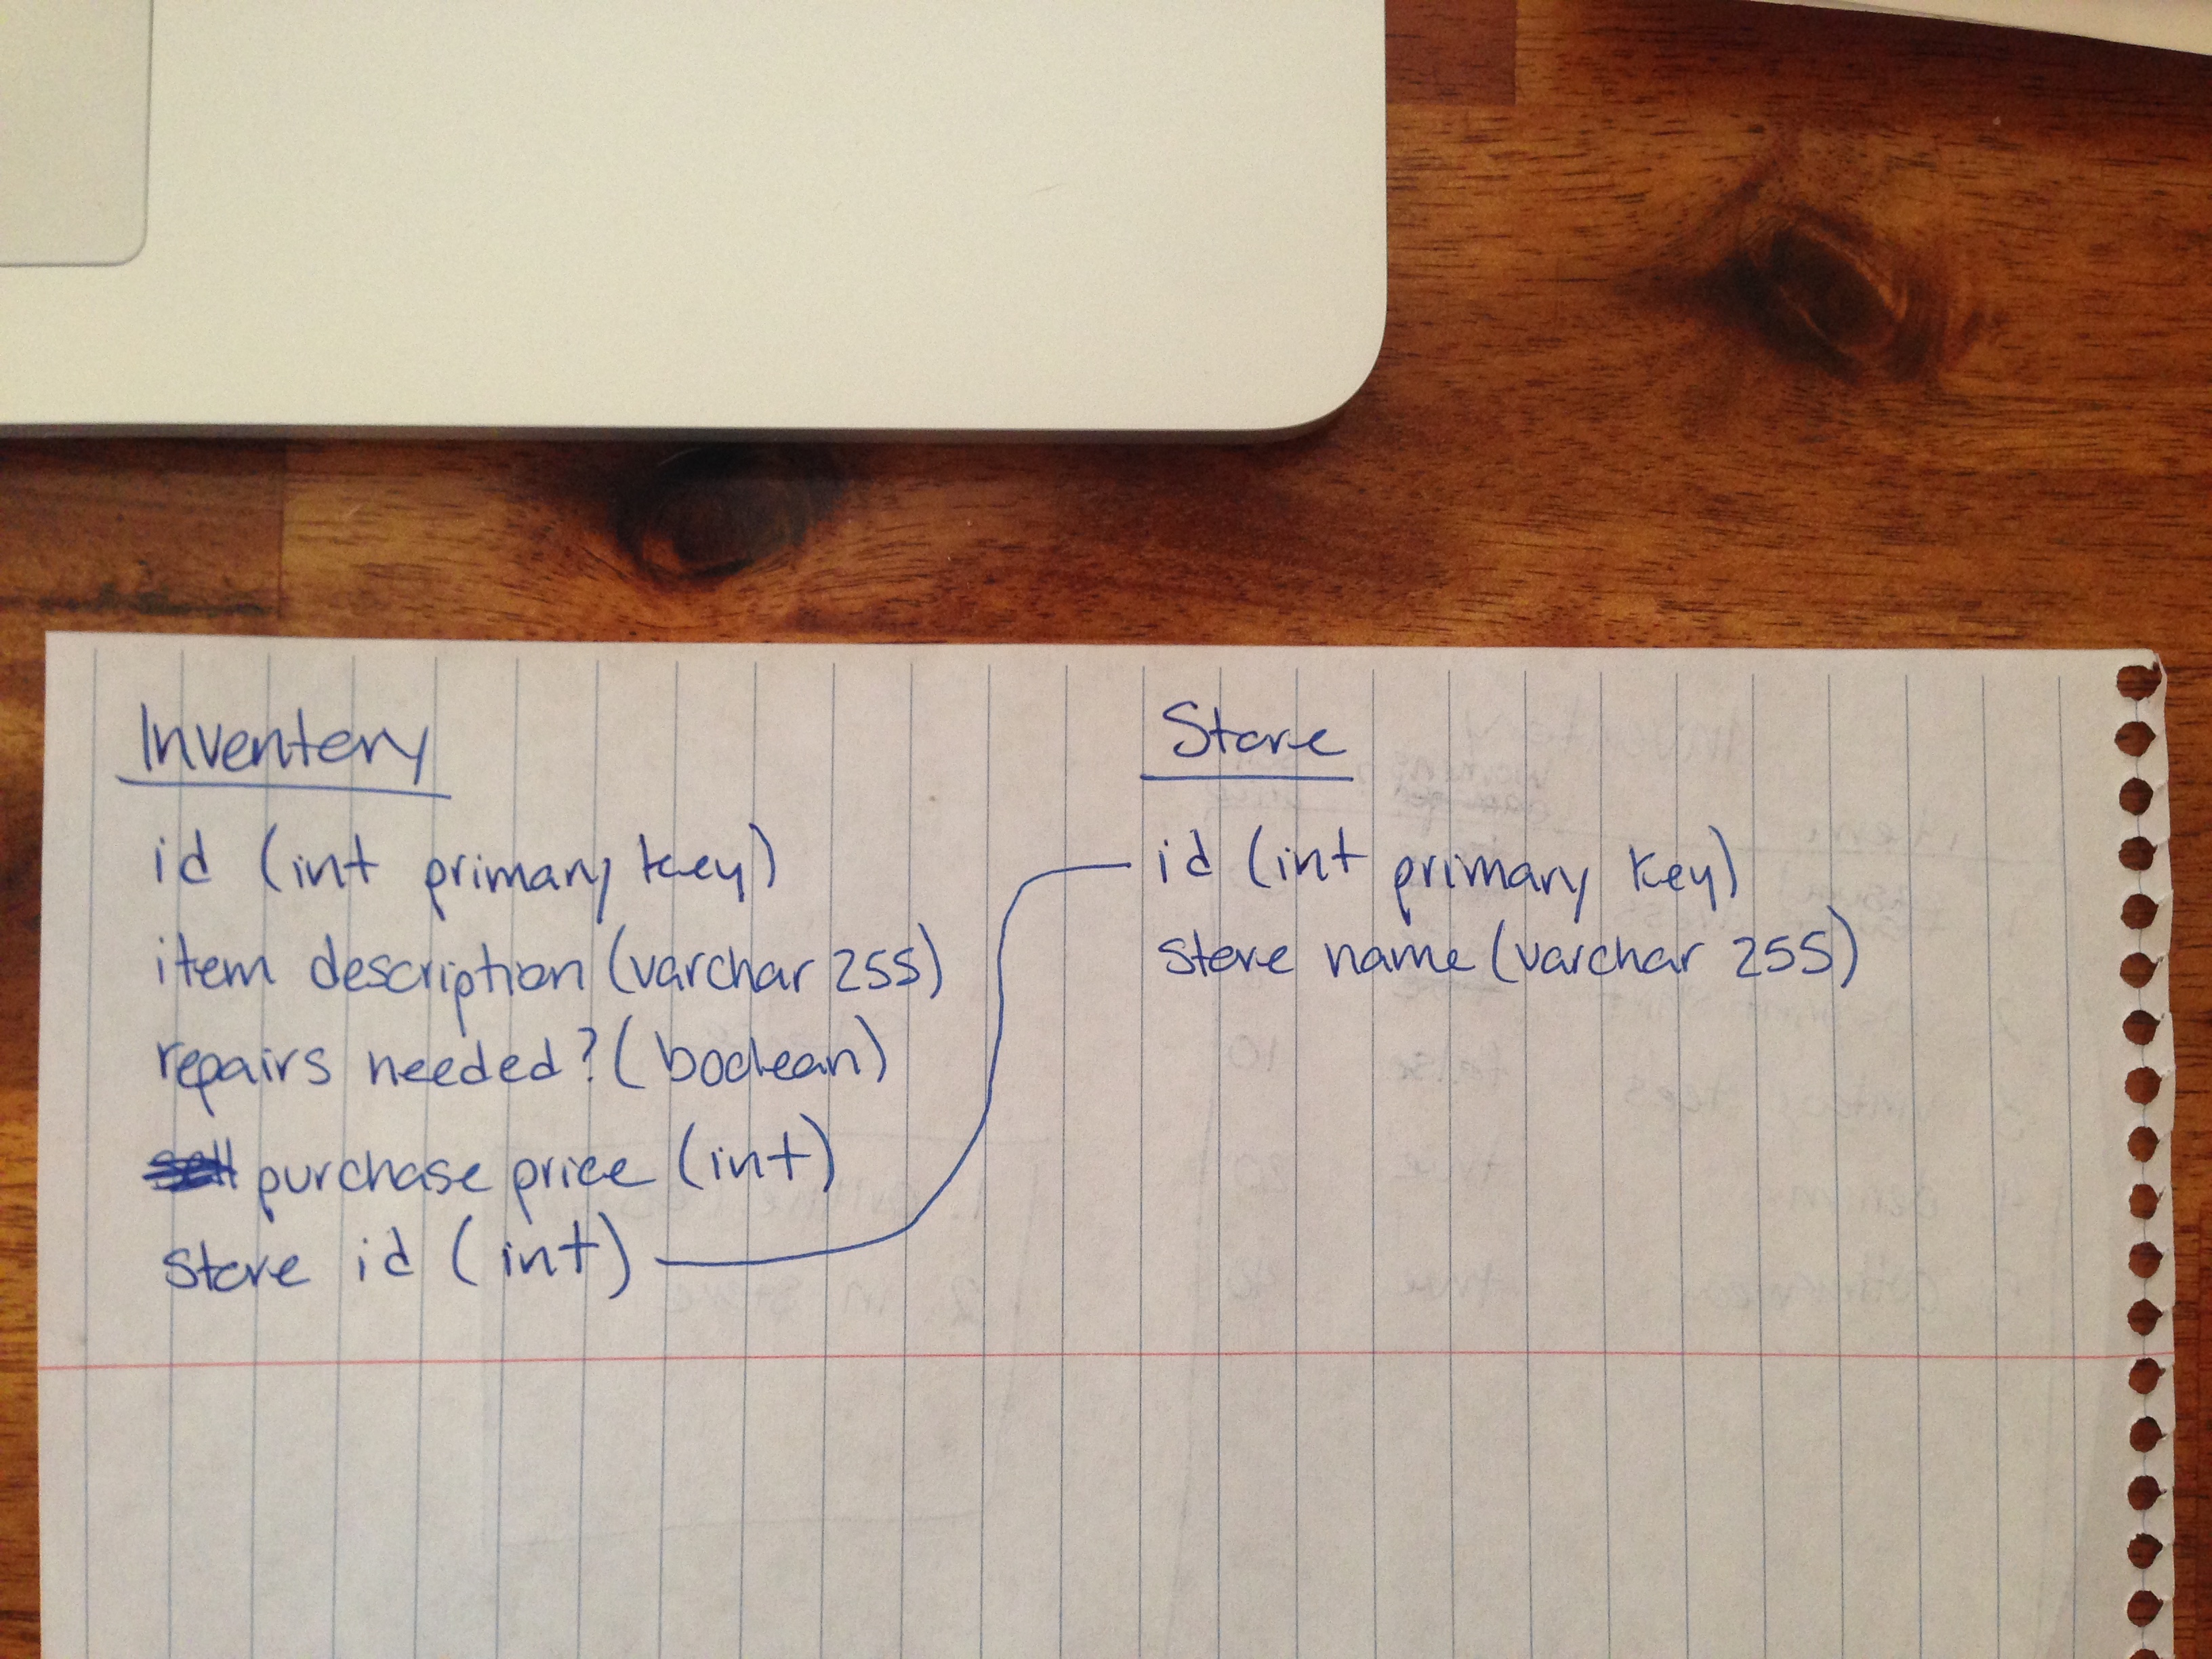 Inventory
id (int primary key)
item description (varchar 255)
repairs needed? (boolean)
purchase price (int)
store id (int)
Store
id (int primary key)
store name (varchar 255)